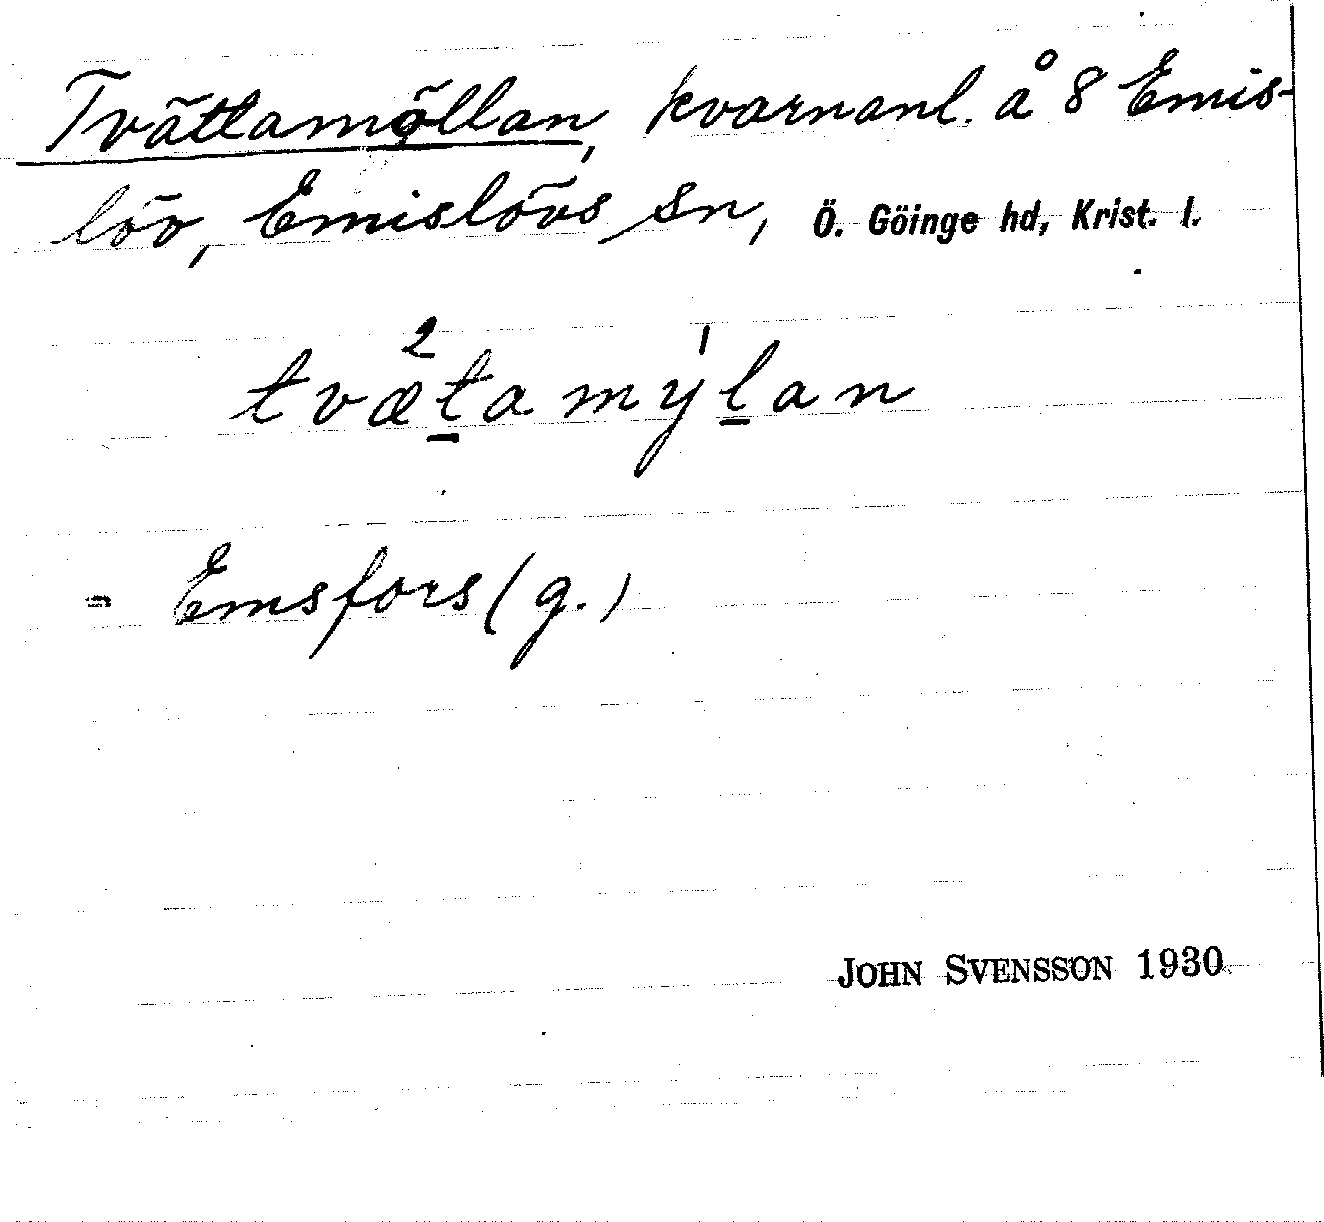 Tvättamöllan, kvarnanl. å 8 Emis-
löv, Emislövs sn, Ö. Göinge hd, Krist. l.
tvæ²ṯamy¹ḻan
= Emsfors (g.)
JOHN SVENSSON 1930